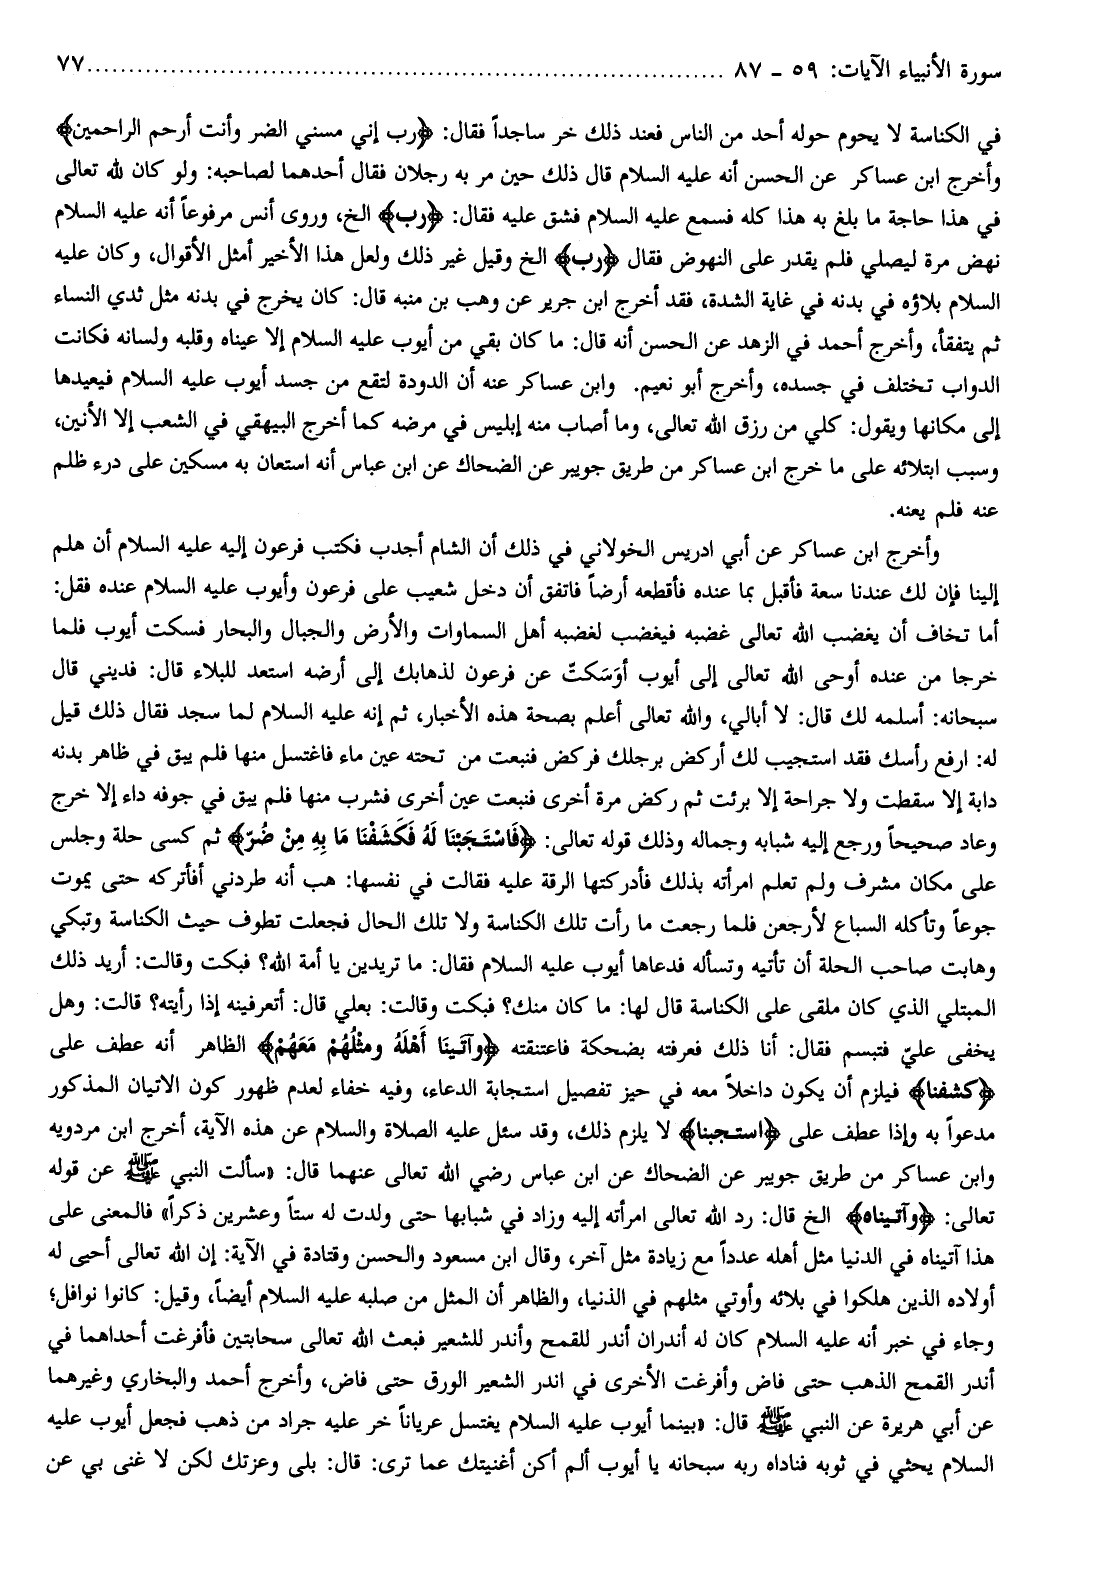 سورة الأنبياء الآيات: ٥٩ ـ ٨٧ ........................................................................... ٧٧
في الكناسة لا يحوم حوله أحد من الناس فعند ذلك خر ساجداً فقال: ﴿رب إني مسني الضر وأنت أرحم الراحمين﴾
وأخرج ابن عساكر عن الحسن أنه عليه السلام قال ذلك حين مر به رجلان فقال أحدهما لصاحبه: ولو كان لله تعالى
في هذا حاجة ما بلغ به هذا كله فسمع عليه السلام فشق عليه فقال: ﴿رب﴾ الخ، وروى أنس مرفوعاً أنه عليه السلام
نهض مرة ليصلي فلم يقدر على النهوض فقال ﴿رب﴾ الخ وقيل غير ذلك ولعل هذا الأخير أمثل الأقوال، وكان عليه
السلام بلاؤه في بدنه في غاية الشدة، فقد أخرج ابن جرير عن وهب بن منبه قال: كان يخرج في بدنه مثل ثدي النساء
ثم يتفقأ، وأخرج أحمد في الزهد عن الحسن أنه قال: ما كان بقي من أيوب عليه السلام إلا عيناه وقلبه ولسانه فكانت
الدواب تختلف في جسده، وأخرج أبو نعيم. وابن عساكر عنه أن الدودة لتقع من جسد أيوب عليه السلام فيعيدها
إلى مكانها ويقول: كلي من رزق الله تعالى، وما أصاب منه إبليس في مرضه كما أخرج البيهقي في الشعب إلا الأنين،
وسبب ابتلائه على ما خرج ابن عساكر من طريق جويبر عن الضحاك عن ابن عباس أنه استعان به مسكين على درء ظلم
عنه فلم يعنه.
وأخرج ابن عساكر عن أبي ادريس الخولاني في ذلك أن الشام أجدب فكتب فرعون إليه عليه السلام أن هلم
إلينا فإن لك عندنا سعة فأقبل بما عنده فأقطعه أرضاً فاتفق أن دخل شعيب على فرعون وأيوب عليه السلام عنده فقل:
أما تخاف أن يغضب الله تعالى غضبه فيغضب لغضبه أهل السماوات والأرض والجبال والبحار فسكت أيوب فلما
خرجا من عنده أوحى الله تعالى إلى أيوب أوَسَكتّ عن فرعون لذهابك إلى أرضه استعد للبلاء قال: فديني قال
سبحانه: أسلمه لك قال: لا أبالي، والله تعالى أعلم بصحة هذه الأخبار، ثم إنه عليه السلام لما سجد فقال ذلك قيل
له: ارفع رأسك فقد استجيب لك أركض برجلك فركض فنبعت من تحته عين ماء فاغتسل منها فلم يبق في ظاهر بدنه
دابة إلا سقطت ولا جراحة إلا برئت ثم ركض مرة أخرى فنبعت عين أخرى فشرب منها فلم يبق في جوفه داء إلا خرج
وعاد صحيحاً ورجع إليه شبابه وجماله وذلك قوله تعالى: ﴿فَاسْتَجَبْنَا لَهُ فَكَشَفْنَا مَا بِهِ مِنْ ضُرّ﴾ ثم كسى حلة وجلس
على مكان مشرف ولم تعلم امرأته بذلك فأدركتها الرقة عليه فقالت في نفسها: هب أنه طردني أفأتركه حتى يموت
جوعاً وتأكله السباع لأرجعن فلما رجعت ما رأت تلك الكناسة ولا تلك الحال فجعلت تطوف حيث الكناسة وتبكي
وهابت صاحب الحلة أن تأتيه وتسأله فدعاها أيوب عليه السلام فقال: ما تريدين يا أمة الله؟ فبكت وقالت: أريد ذلك
المبتلي الذي كان ملقى على الكناسة قال لها: ما كان منك؟ فبكت وقالت: بعلي قال: أتعرفينه إذا رأيته؟ قالت: وهل
يخفى عليّ فتبسم فقال: أنا ذلك فعرفته بضحكة فاعتنقته ﴿وآتَينَا أَهْلَهُ ومثْلُهُمْ مَعَهُمْ﴾ الظاهر أنه عطف على
﴿كشفنا﴾ فيلزم أن يكون داخلاً معه في حيز تفصيل استجابة الدعاء، وفيه خفاء لعدم ظهور كون الاتيان المذكور
مدعواً به وإذا عطف على ﴿استجبنا﴾ لا يلزم ذلك، وقد سئل عليه الصلاة والسلام عن هذه الآية، أخرج ابن مردويه
وابن عساكر من طريق جويبر عن الضحاك عن ابن عباس رضي الله تعالى عنهما قال: «سألت النبي ﷺ عن قوله
تعالى: ﴿وآتيناه﴾ الخ قال: رد الله تعالى امرأته إليه وزاد في شبابها حتى ولدت له ستاً وعشرين ذكراً» فالمعنى على
هذا آتيناه في الدنيا مثل أهله عدداً مع زيادة مثل آخر، وقال ابن مسعود والحسن وقتادة في الآية: إن الله تعالى أحيى له
أولاده الذين هلكوا في بلائه وأوتي مثلهم في الذنيا، والظاهر أن المثل من صلبه عليه السلام أيضاً، وقيل: كانوا نوافل؛
وجاء في خبر أنه عليه السلام كان له أندران أندر للقمح وأندر للشعير فبعث الله تعالى سحابتين فأفرغت أحداهما في
أندر القمح الذهب حتى فاض وأفرغت الأخرى في اندر الشعير الورق حتى فاض، وأخرج أحمد والبخاري وغيرهما
عن أبي هريرة عن النبي ﷺ قال: «بينما أيوب عليه السلام يغتسل عرياناً خر عليه جراد من ذهب فجعل أيوب عليه
السلام يحثي في ثوبه فناداه ربه سبحانه يا أيوب ألم أكن أغنيتك عما ترى: قال: بلى وعزتك لكن لا غنى بي عن